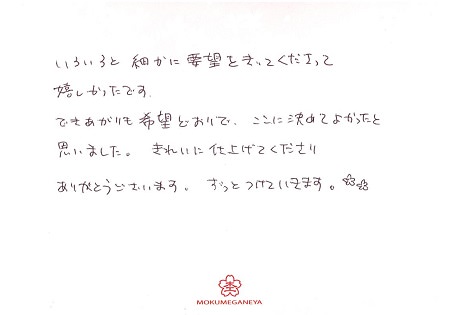 いろいろと 細かに 要望をきいてくださって
嬉しかったです。
できあがりも希望どおりで、ここに決めてよかったと
思いました。 きれいに仕上げてくださり
ありがとうございます。 ずっとつけていきます。
杢
MOKUMEGANEYA